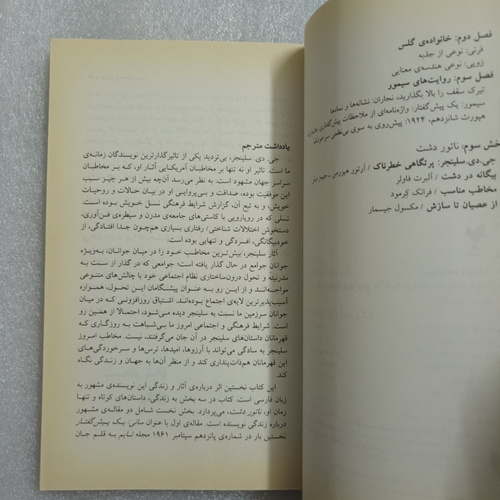 یادداشت مترجم
جی. دی. سلینجر، بی‌تردید یکی از تاثیرگذارترین نویسندگان زمانه‌ی
ما است. تاثیر او نه تنها بر مخاطبان آمریکایی آثار او، که بر مخاطبان
سراسر جهان مشهود است. به نظر می‌رسد آن‌چه بیش از هر چیز سبب
این موفقیت بوده، صداقت و بی‌پروایی او در بیان حالات و روحیات
خویش، و به تبع آن، گزارش شرایط فرهنگی نسل خویش بوده است.
نسلی که در رویارویی با کاستی‌های جامعه‌ی مدرن و سیطره‌ی فن‌آوری،
دستخوش اختلالات شناختی/ رفتاری بسیاری هم‌چون جدا افتادگی، از
خودبیگانگی، افسردگی و تنهایی بوده است.
آثار سلینجر، بیش‌ترین مخاطب خود را در میان جوانان، به‌ویژه
جوانان جوامع در حال گذار یافته است؛ جوامعی که در گذار از سنت به
مدرنیته و تحول درون‌ساختاری نظام اجتماعی خود با چالش‌های متنوعی
مواجه‌اند و از این رو به عنوان پیشگامان این تحول، همواره
آسیب‌پذیرترین لایه‌ی اجتماع بوده‌اند. اشتیاق روزافزونی که در میان
جوانان سرزمین ما نسبت به سلینجر دیده می‌شود، احتمالا از همین رو
است. شرایط فرهنگی و اجتماعی امروز ما بی‌شباهت به روزگاری که
قهرمانان داستان‌های سلینجر در آن جان می‌گرفتند، نیست. مخاطب امروز
سلینجر به سادگی می‌تواند با آرزوها، امیدها، ترس‌ها و سرخوردگی‌های
این قهرمانان هم‌ذات‌پنداری کند و از منظر آن‌ها به جهان و زندگی نگاه
کند.
این کتاب نخستین اثر درباره‌ی آثار و زندگی این نویسنده‌ی مشهور به
زبان فارسی است. کتاب در سه بخش به زندگی، داستان‌های کوتاه و تنها
رمان او، ناتور دشت، می‌پردازد. بخش نخست شامل دو مقاله‌ی مشهور
درباره زندگی نویسنده است. مقاله‌ی اول با عنوان سانی: یک پیش‌گفتار
نخستین بار در شماره‌ی پانزدهم سپتامبر ۱۹۶۱ مجله تایم به قلم جان
فصل دوم: خانواده‌ی گلس
فرنی: نوعی از جذبه
زویی: نوعی هندسه‌ی معنایی
فصل سوم: روایت‌های سیمور
تیرک سقف را بالا بگذارید، نجاران: نشانه‌ها و نمادها
سیمور: یک پیش‌گفتار: واژه‌نامه‌ای از ملاحظات پیش‌گفتاری
هپورث شانزدهم، ۱۹۲۴: پیش‌روی به سوی بی‌نظمی
خش سوم: ناتور دشت
جی. دی. سلینجر: پرتگاهی خطرناک / آرتور هیزرمن
بیگانه در دشت / آلبرت فاولر
مخاطب مناسب / فرانک کرمود
از عصیان تا سازش / مکسول جیسمار